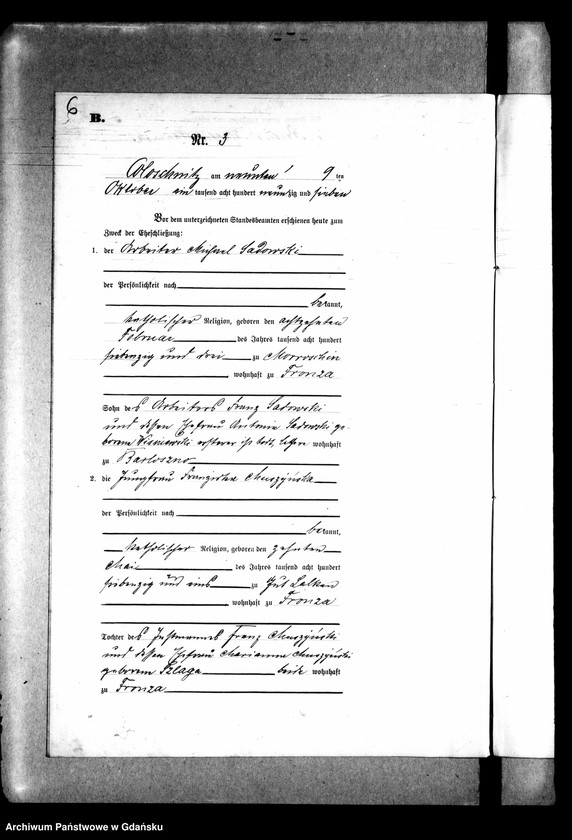 6
B.
Nr. 3
am neunten 9 ten
Oktober ein tausend acht hundert neunzig und sieben
Vor dem unterzeichneten Standesbeamten erschienen heute zum
Zweck der Eheschließung:
1. der Arbeiter Michael Sadowski
der Persönlichkeit nach
bekannt,
katholischer Religion, geboren den achtzehnten
Februar des Jahres tausend acht hundert
siebenzig und drei zu Morroschin
wohnhaft zu Fronza
Sohn des Arbeiters Franz Sadowski
und dessen Ehefrau Antonie Sadowski ge-
borenen Wisniewski ersterer ist todt, letztere wohnhaft
zu Barloszno
2. die Jungfrau Franziska Muszyńska
der Persönlichkeit nach
bekannt,
katholischer Religion, geboren den zehnten
Mai des Jahres tausend acht hundert
siebenzig und eins zu Gut Lalkau
wohnhaft zu Fronza
Tochter des Instmannes Franz Muszyński
und dessen Ehefrau Marianna Muszyński
geborenen Szlaga beide wohnhaft
zu Fronza
Archiwum Państwowe w Gdańsku